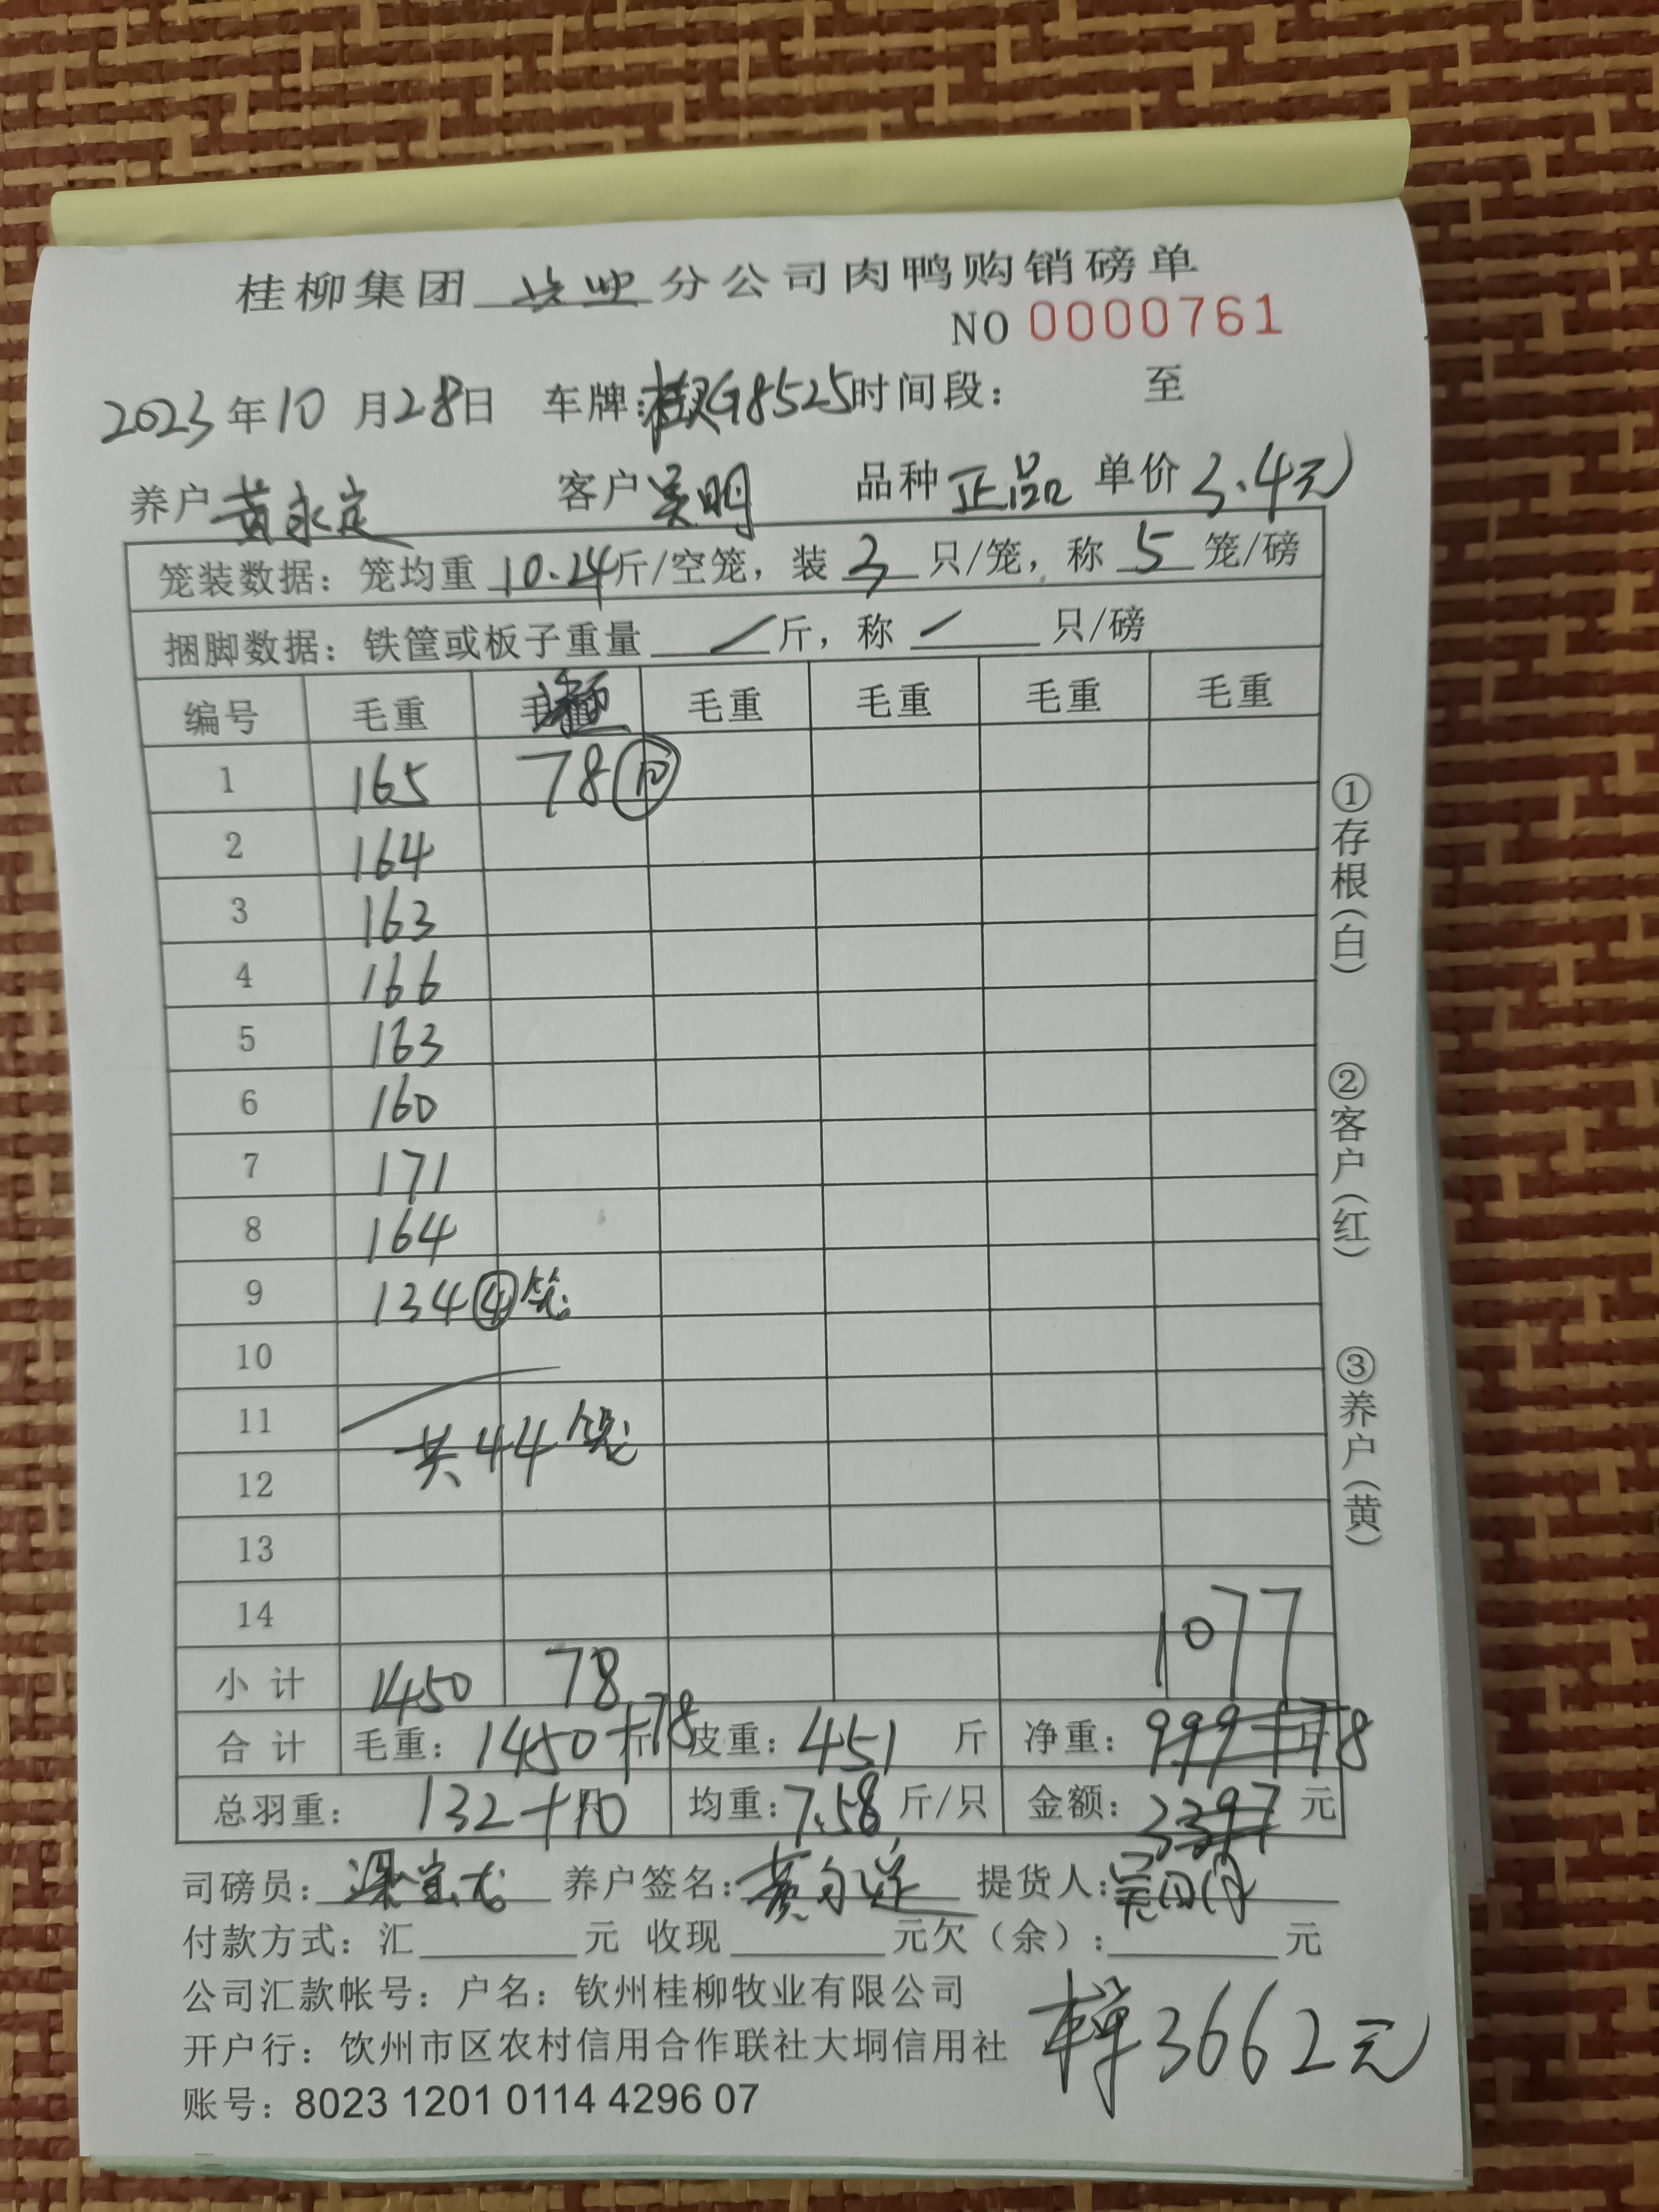 桂柳集团 分公司肉鸭购销磅单
NO 0000761
2023年10月28日 车牌:桂G8525时间段: 至
养户黄永定 客户吴明 品种正品 单价3.4元
笼装数据: 笼均重10.24斤/空笼, 装3只/笼, 称5笼/磅
捆脚数据: 铁筐或板子重量/斤, 称/只/磅
编号 毛重 毛重 毛重 毛重 毛重
1 165 78⑩
2 164
3 163
4 166
5 163
6 160
7 171
8 164
9 134④笼
10
11
共44笼
12
13
14
1077
小计 1450 78
合计 毛重: 1450斤+78 皮重: 451斤 净重: 999斤+78
总羽重: 132+10 均重: 7.58斤/只 金额: 3397元
司磅员: 养户签名: 黄永定 提货人:
付款方式: 汇 元 收现 元欠(余): 元
公司汇款帐号: 户名: 钦州桂柳牧业有限公司
开户行: 饮州市区农村信用合作联社大垌信用社
3662元
账号: 8023 1201 0114 4296 07
①存根(白)
②客户(红)
③养户(黄)